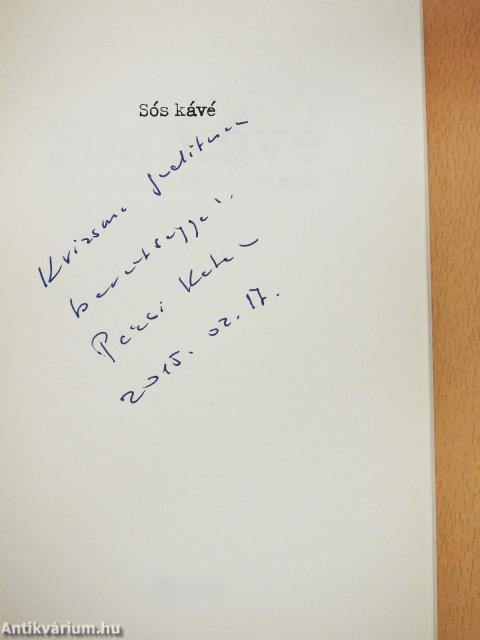 Sós kávé
Krizsma Juditnak
barátsággal:
Pécsi Kata
2015. 02. 17.
Antikvárium.hu